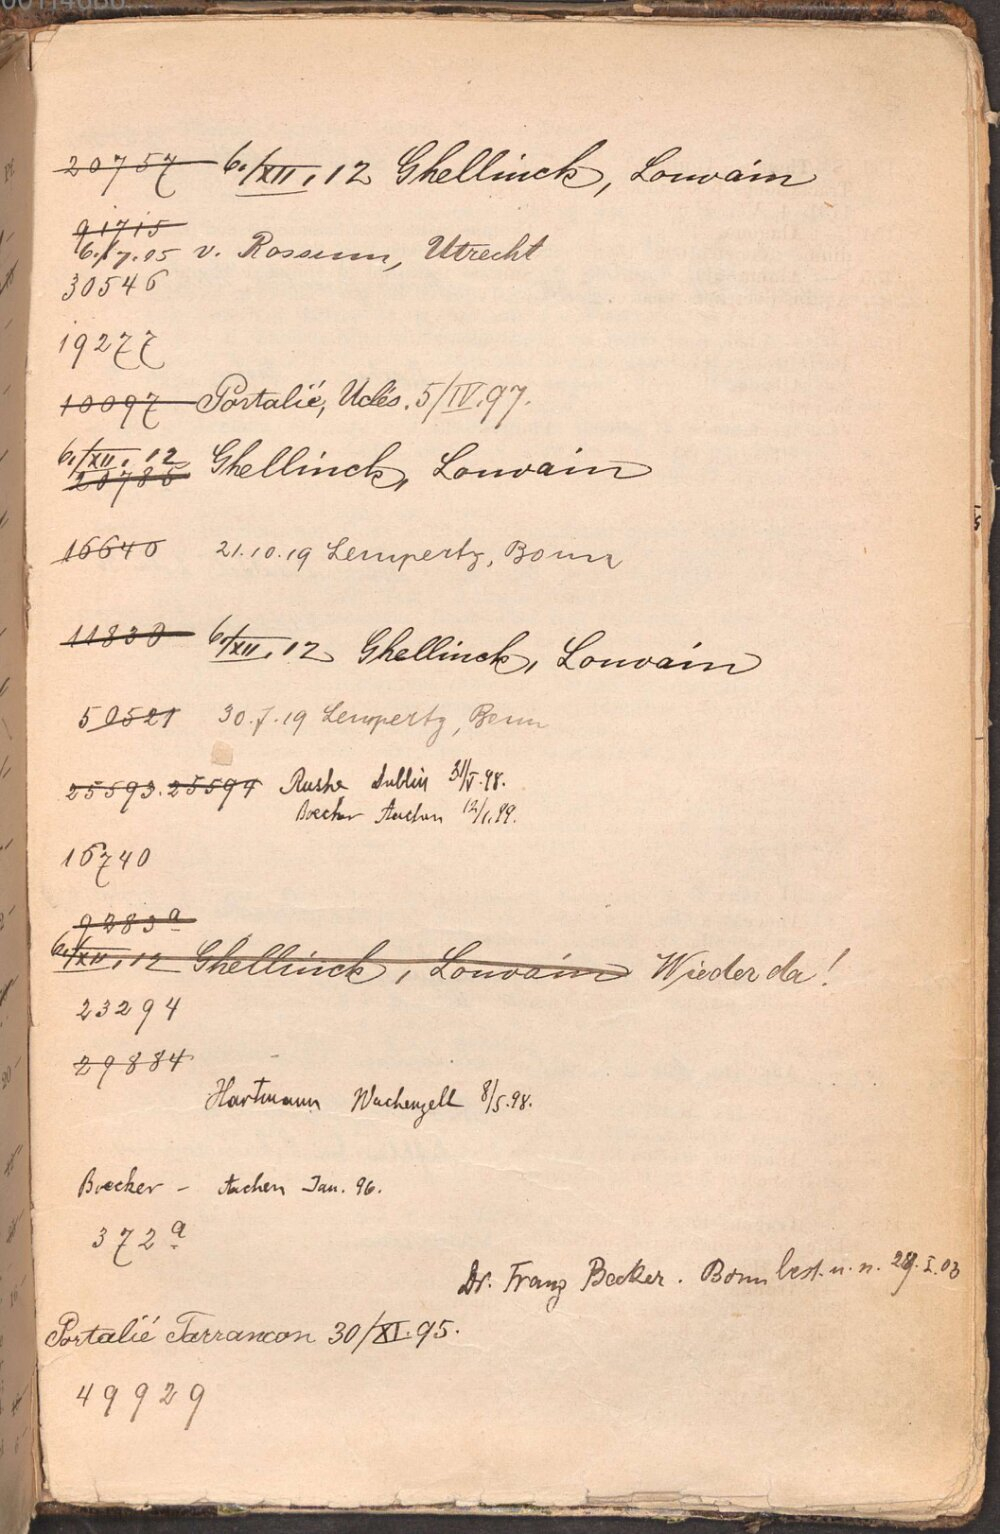 20757 6./XII. 12 Ghellinck, Louvain
91715
6./7.05 v. Rossum, Utrecht
30546
19277
10097 Portalié, Uclés. 5/IV.97.
6./XII. 12
20785 Ghellinck, Louvain
16640 21.10.19 Lempertz, Bonn
11830 6./XII. 12 Ghellinck, Louvain
50521 30.7.19 Lempertz, Bonn
25593. 25594 Rushe Dublin 31/V.98.
Boecker Aachen 12/1.99.
16740
9283a
6./XII. 12 Ghellinck, Louvain Wieder da!
23294
29884
Hartmann 8/5.98.
Boecker - Aachen Jan. 96.
372a
Dr. Franz Becker. Bonn best. u. n. I.03
Portalié Tarrancon 30/XI.95.
49929